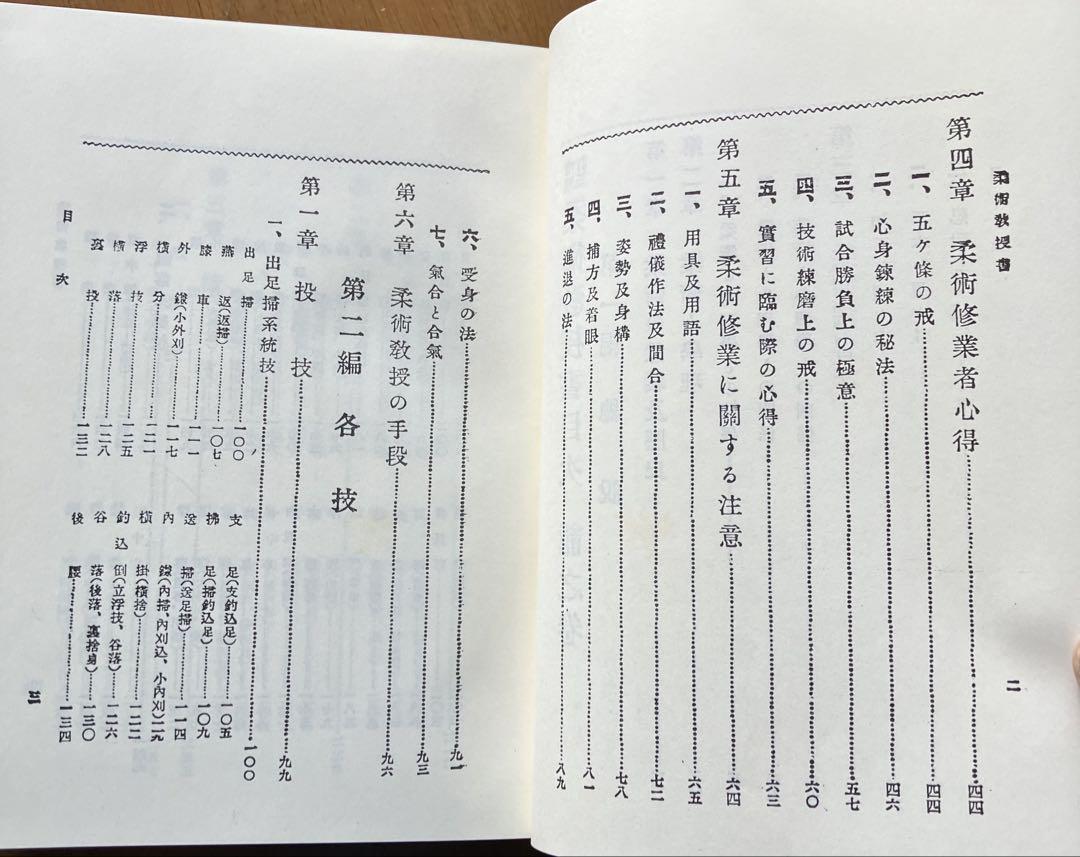 柔術教授書
第四章 柔術修業者心得 四四
一、五ケ條の戒 四四
二、心身鍊練の秘法 四六
三、試合勝負上の極意 五七
四、技術練磨上の戒 六〇
五、實習に臨む際の心得 六三
第五章 柔術修業に關する注意 六四
一、用具及用語 六五
二、禮儀作法及間合 七二
三、姿勢及身構 七八
四、捕方及着眼 八一
五、進退の法 八九
二
六、受身の法 九一
七、氣合と合氣 九三
第六章 柔術教授の手段 九六
第二編 各技
第一章 投技 九九
一、出足掃系統技 一〇〇
出足掃 一〇〇
支足(支釣込足) 一〇五
燕返(返掃) 一〇七
拂足(掃釣込足) 一〇九
膝車 一一一
送掃(送足掃) 一一四
外鎌(小外刈) 一一七
內鎌(內掃、內刈込、小內刈) 一一九
橫分 一二一
橫掛(橫捨) 一二二
浮技 一二五
釣込倒(立浮技、谷落) 一二六
橫落 一二八
谷落(後落、裏捨身) 一三〇
裏投 一三二
後腰 一三四
目次
三